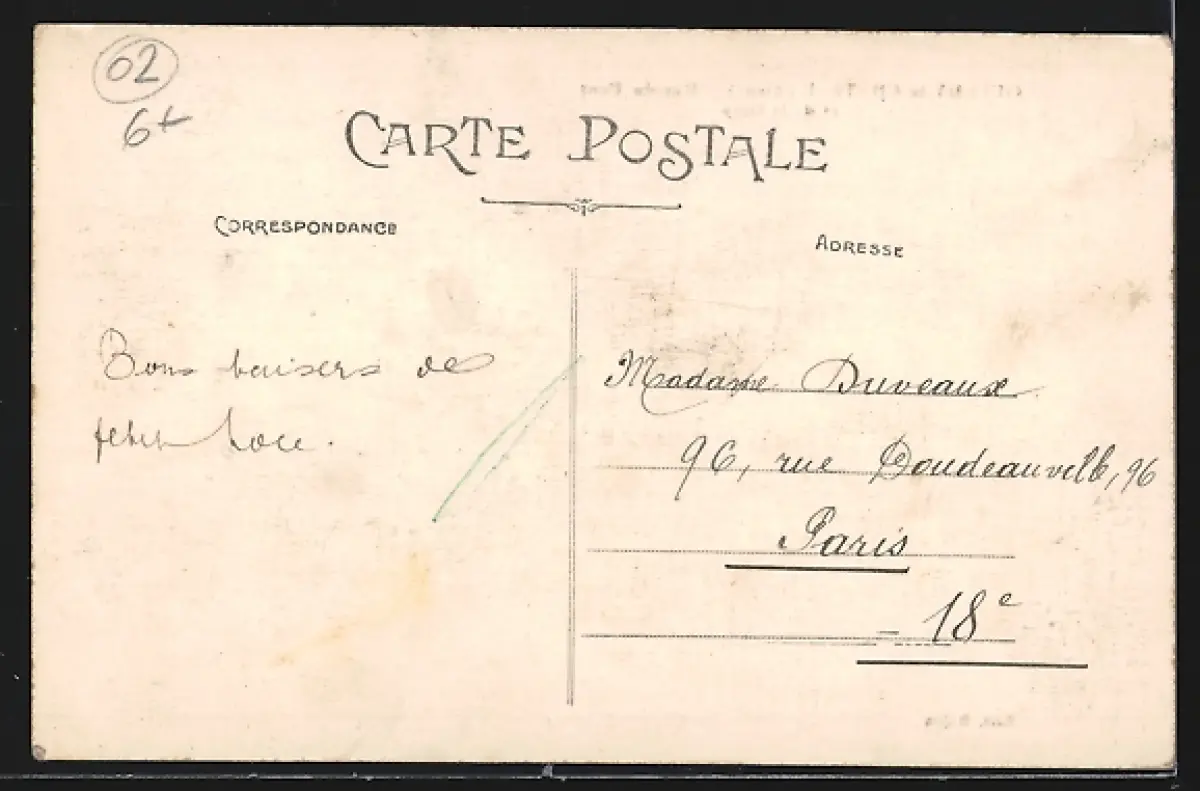 02
6
CARTE POSTALE
CORRESPONDANCE
ADRESSE
Bons baisers de
Madame Duveaux
96, rue Doudeauville, 96
Paris
18e